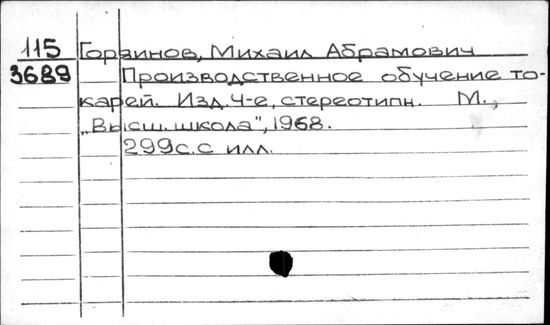 115 Горяинов, Михаил Абрамович
3689 Производственное обучение то-
карей. Изд. 4-е, стереотипн. М.,
„Высш. школа", 1968.
299с. с илл.